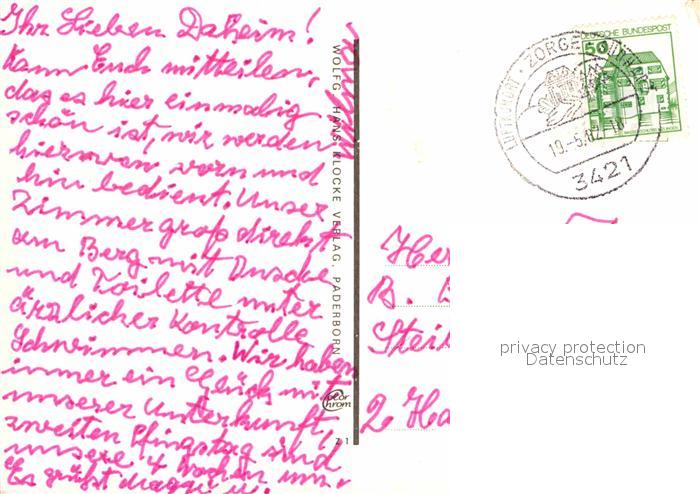 Ihr Lieben Daheim!
Kann Euch mitteilen,
das es hier einmalig
schön ist, wir werden
hier von vorn und
hin bedient. Unser
Zimmer groß direkt
am Berg mit Dusche
und Toilette unter
ärzlicher Kontrolle
Schwimmen. Wir haben
immer ein Glück mit
unserer Unterkunft,
zweiten Pfingstag sind
unsere 4 Wochen um.
Es grüßt
WOLFG. HANS KLOCKE VERLAG, PADERBORN
Color
chrom
Z 1
DEUTSCHE BUNDESPOST
50
LUFTKURORT · ZORGE
10.-5.8
3421
Her
B.
Stei
2 Ha
privacy protection
Datenschutz